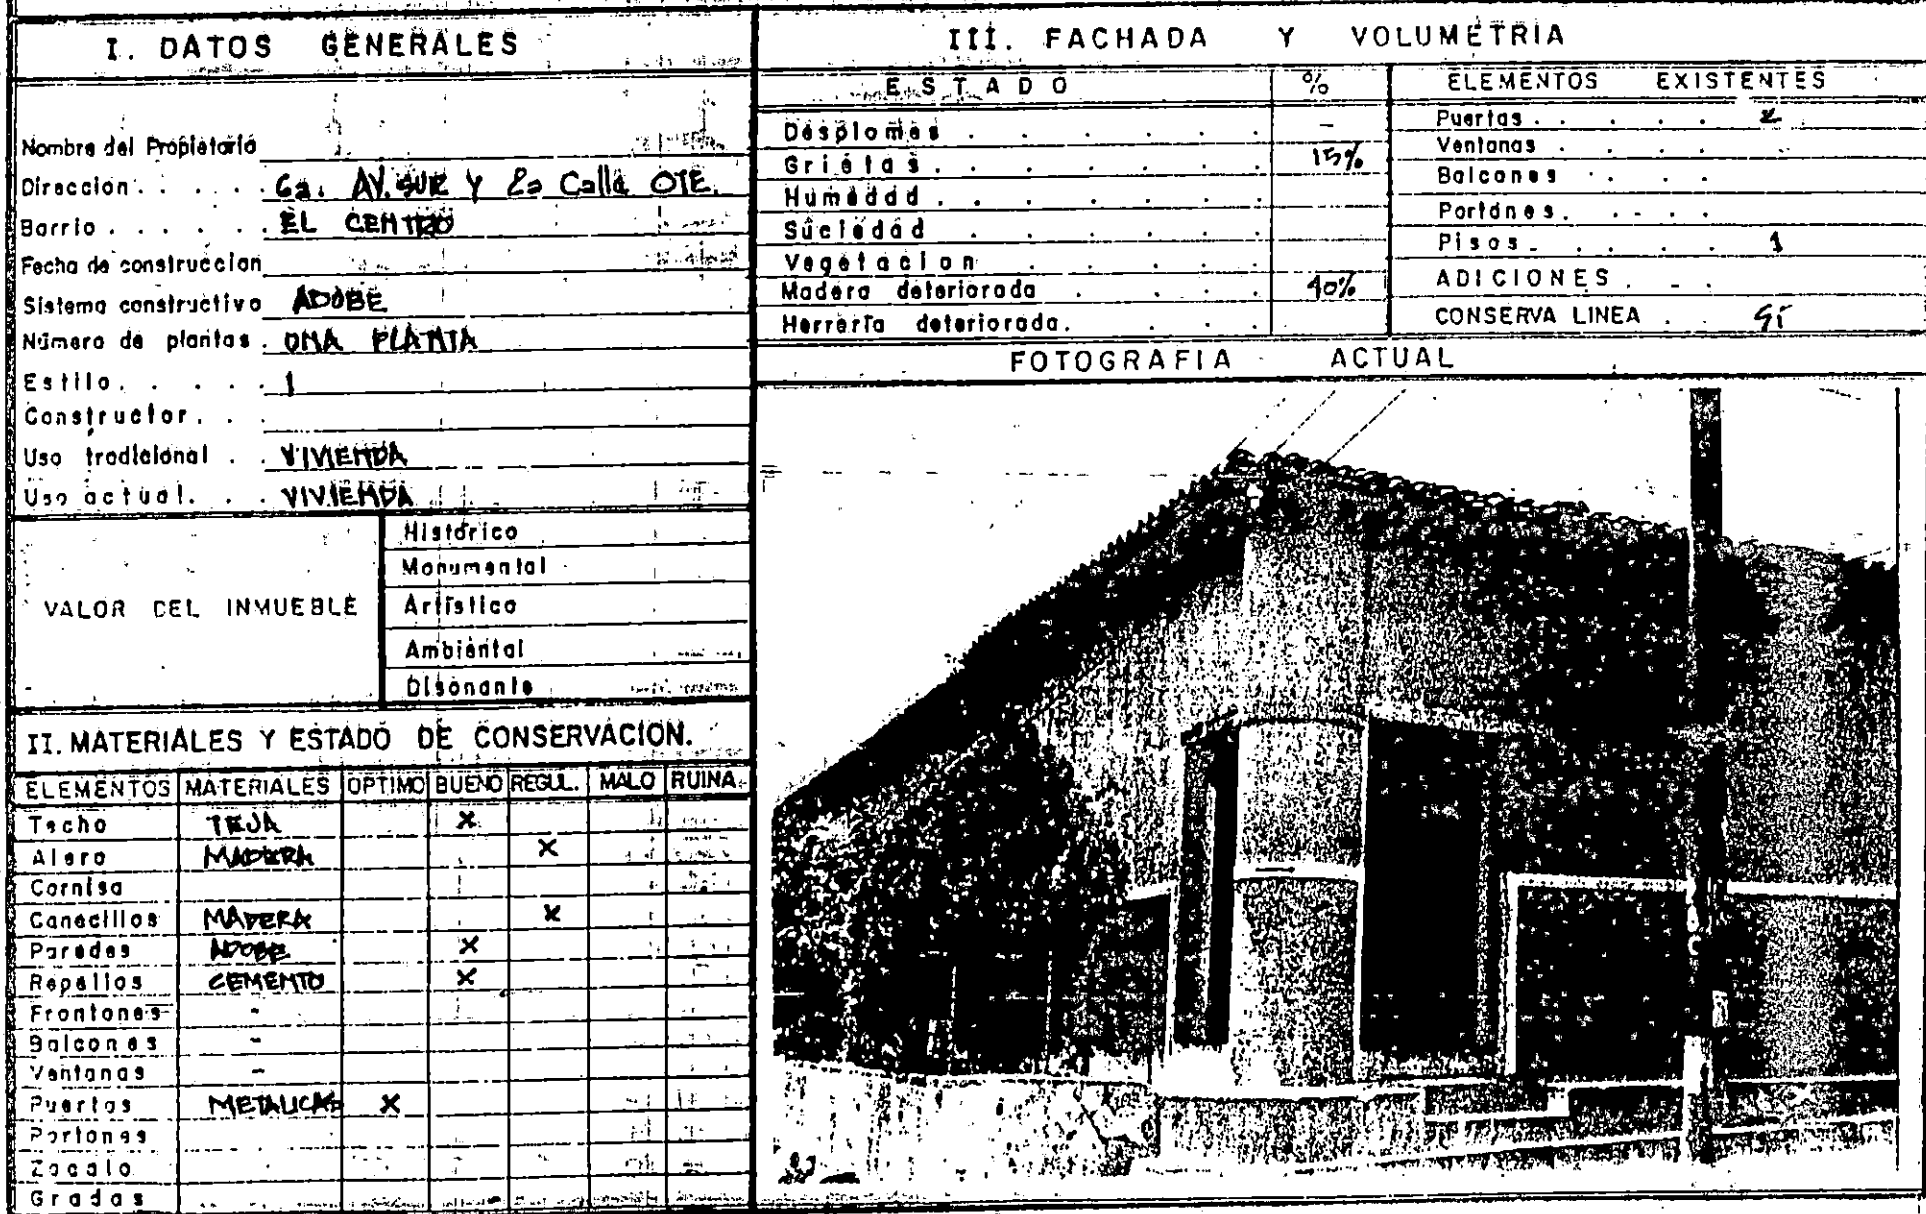 I. DATOS GENERALES
Nombre del Propietario
Direccion . . . . . 6a. AV. SUR Y 2a Calle OTE.
Barrio . . . . . . EL CENTRO
Fecha de construccion
Sistema constructivo ADOBE
Número de plantas . UNA PLANTA
Estilo . . . . . 1
Constructor . . .
Uso tradicional . . VIVIENDA
Uso actual . . . VIVIENDA
VALOR DEL INMUEBLE
Histórico
Monumental
Artístico
Ambiental
Disonante
II. MATERIALES Y ESTADO DE CONSERVACION.
ELEMENTOS MATERIALES OPTIMO BUENO REGUL. MALO RUINA
Techo TEJA x
Alero MADERA x
Cornisa
Canecillos MADERA x
Paredes ADOBE x
Repellos CEMENTO x
Frontones -
Balcones -
Ventanas -
Puertas METALICAS x
Portones
Zocalo
Gradas
III. FACHADA Y VOLUMETRIA
ESTADO %
Desplomes . . . . . . -
Grietas . . . . . . 15%
Humedad . . . . . .
Suciedad . . . . .
Vegetacion . . . .
Madera deteriorada . . . 40%
Herrería deteriorada . . .
ELEMENTOS EXISTENTES
Puertas . . . . . 2
Ventanas . . . . .
Balcones . . . .
Portones . . . . .
Pisos . . . . . 1
ADICIONES . . .
CONSERVA LINEA . . Sí
FOTOGRAFIA ACTUAL